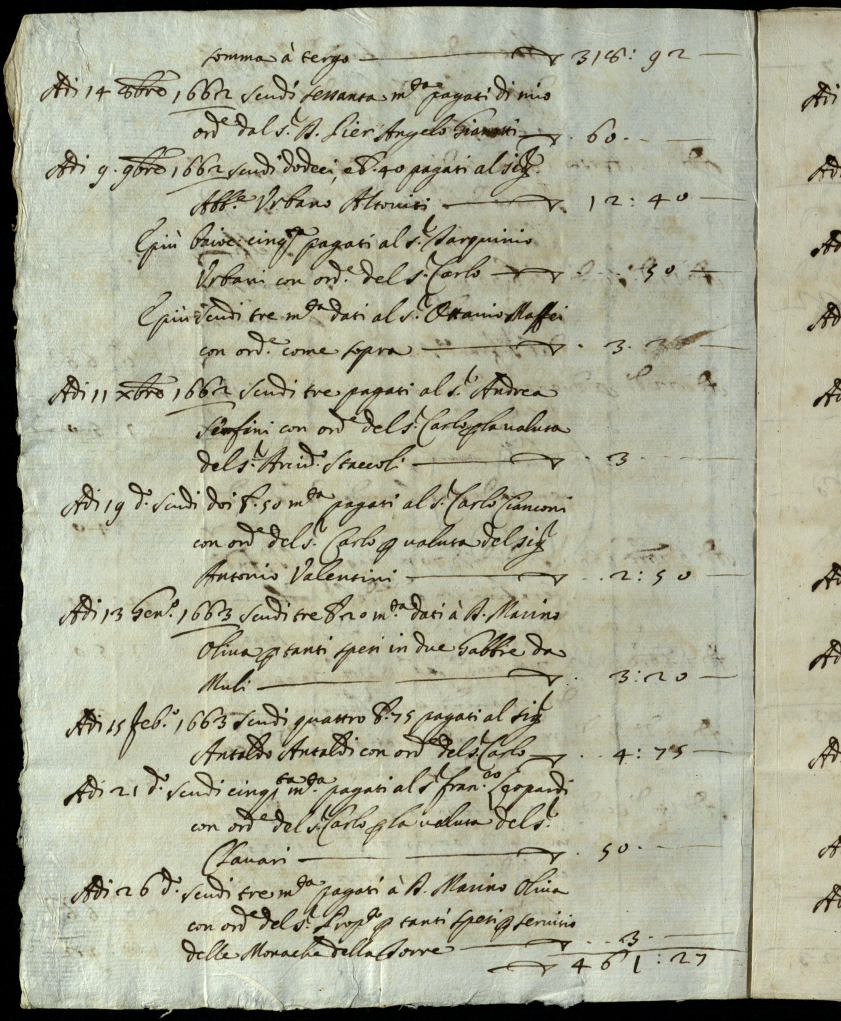 somma à tergo ▽ 318: 92
Adi 14 8bre 1662 scudi sessanta m.ta pagati di mio
ord.e dal s.r D. Pier Angelo ▽ 60
Adi 9. 9bre 1662 scudi dodeci, e b. 40 pagati al sig.r
Abb.e Urbano Altoviti ▽ 12: 40
E più baioc: cinq.ta pagati al s.r Tarquinio
Urbani con ord.e del s.r Carlo ▽ 50
E più scudi tre m.ta dati al s.r Ottavio Maffei
con ord.e come sopra ▽ 3
Adi 11 xbre 1662 scudi tre pagati al s.r Andrea
con ord.e del s.r Carlo p la valuta
del s.r Arcid. Staccoli ▽ 3
Adi 19 d.o scudi doi b. 50 m.ta pagati al s.r Carlo Cianconi
con ord.e del s.r Carlo p valuta del sig.r
Antonio Valentini ▽ 2: 50
Adi 13 Gen.o 1663 scudi tre b. 20 m.ta dati à D. Marino
Oliva p tanti spesi in due Gabbie da
Muli ▽ 3: 20
Adi 15 feb.o 1663 scudi quattro b. 75 pagati al sig.r
Antaldo Antaldi con ord.e del s.r Carlo ▽ 4: 75
Adi 21 d.o scudi cinq.ta m.ta pagati al s.r fran.co Leopardi
con ord.e del s.r Carlo p la valuta del s.r
Chavari ▽ 50
Adi 26 d.o scudi tre m.ta pagati à D. Marino Oliva
con ord.e del s.r p tanti spesi p servitio
delle Monache della Torre ▽ 3
▽ 461: 27
Adi
Adi
Adi
Adi
Adi
Adi
Adi
Adi
A
Adi